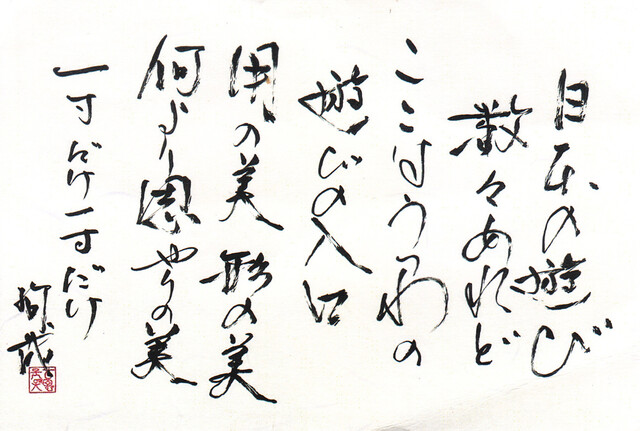 日本の遊び
数々あれど
ここはうつわの
遊びの入口
用の美 形の美
何より思いやりの美
一寸だけ一寸だけ